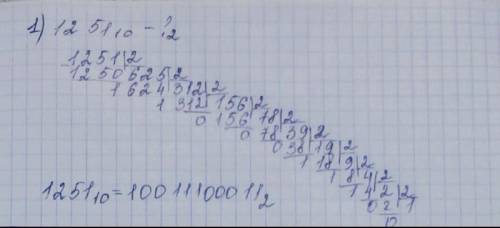 1) 1251₁₀ – ?₂
1251|2
1250 625|2
1 624 312|2
1 312 156|2
0 156 78|2
0 78 39|2
0 38 19|2
1 18 9|2
1 8 4|2
1 4 2|2
0 2 1
0
1251₁₀ = 10011100011₂